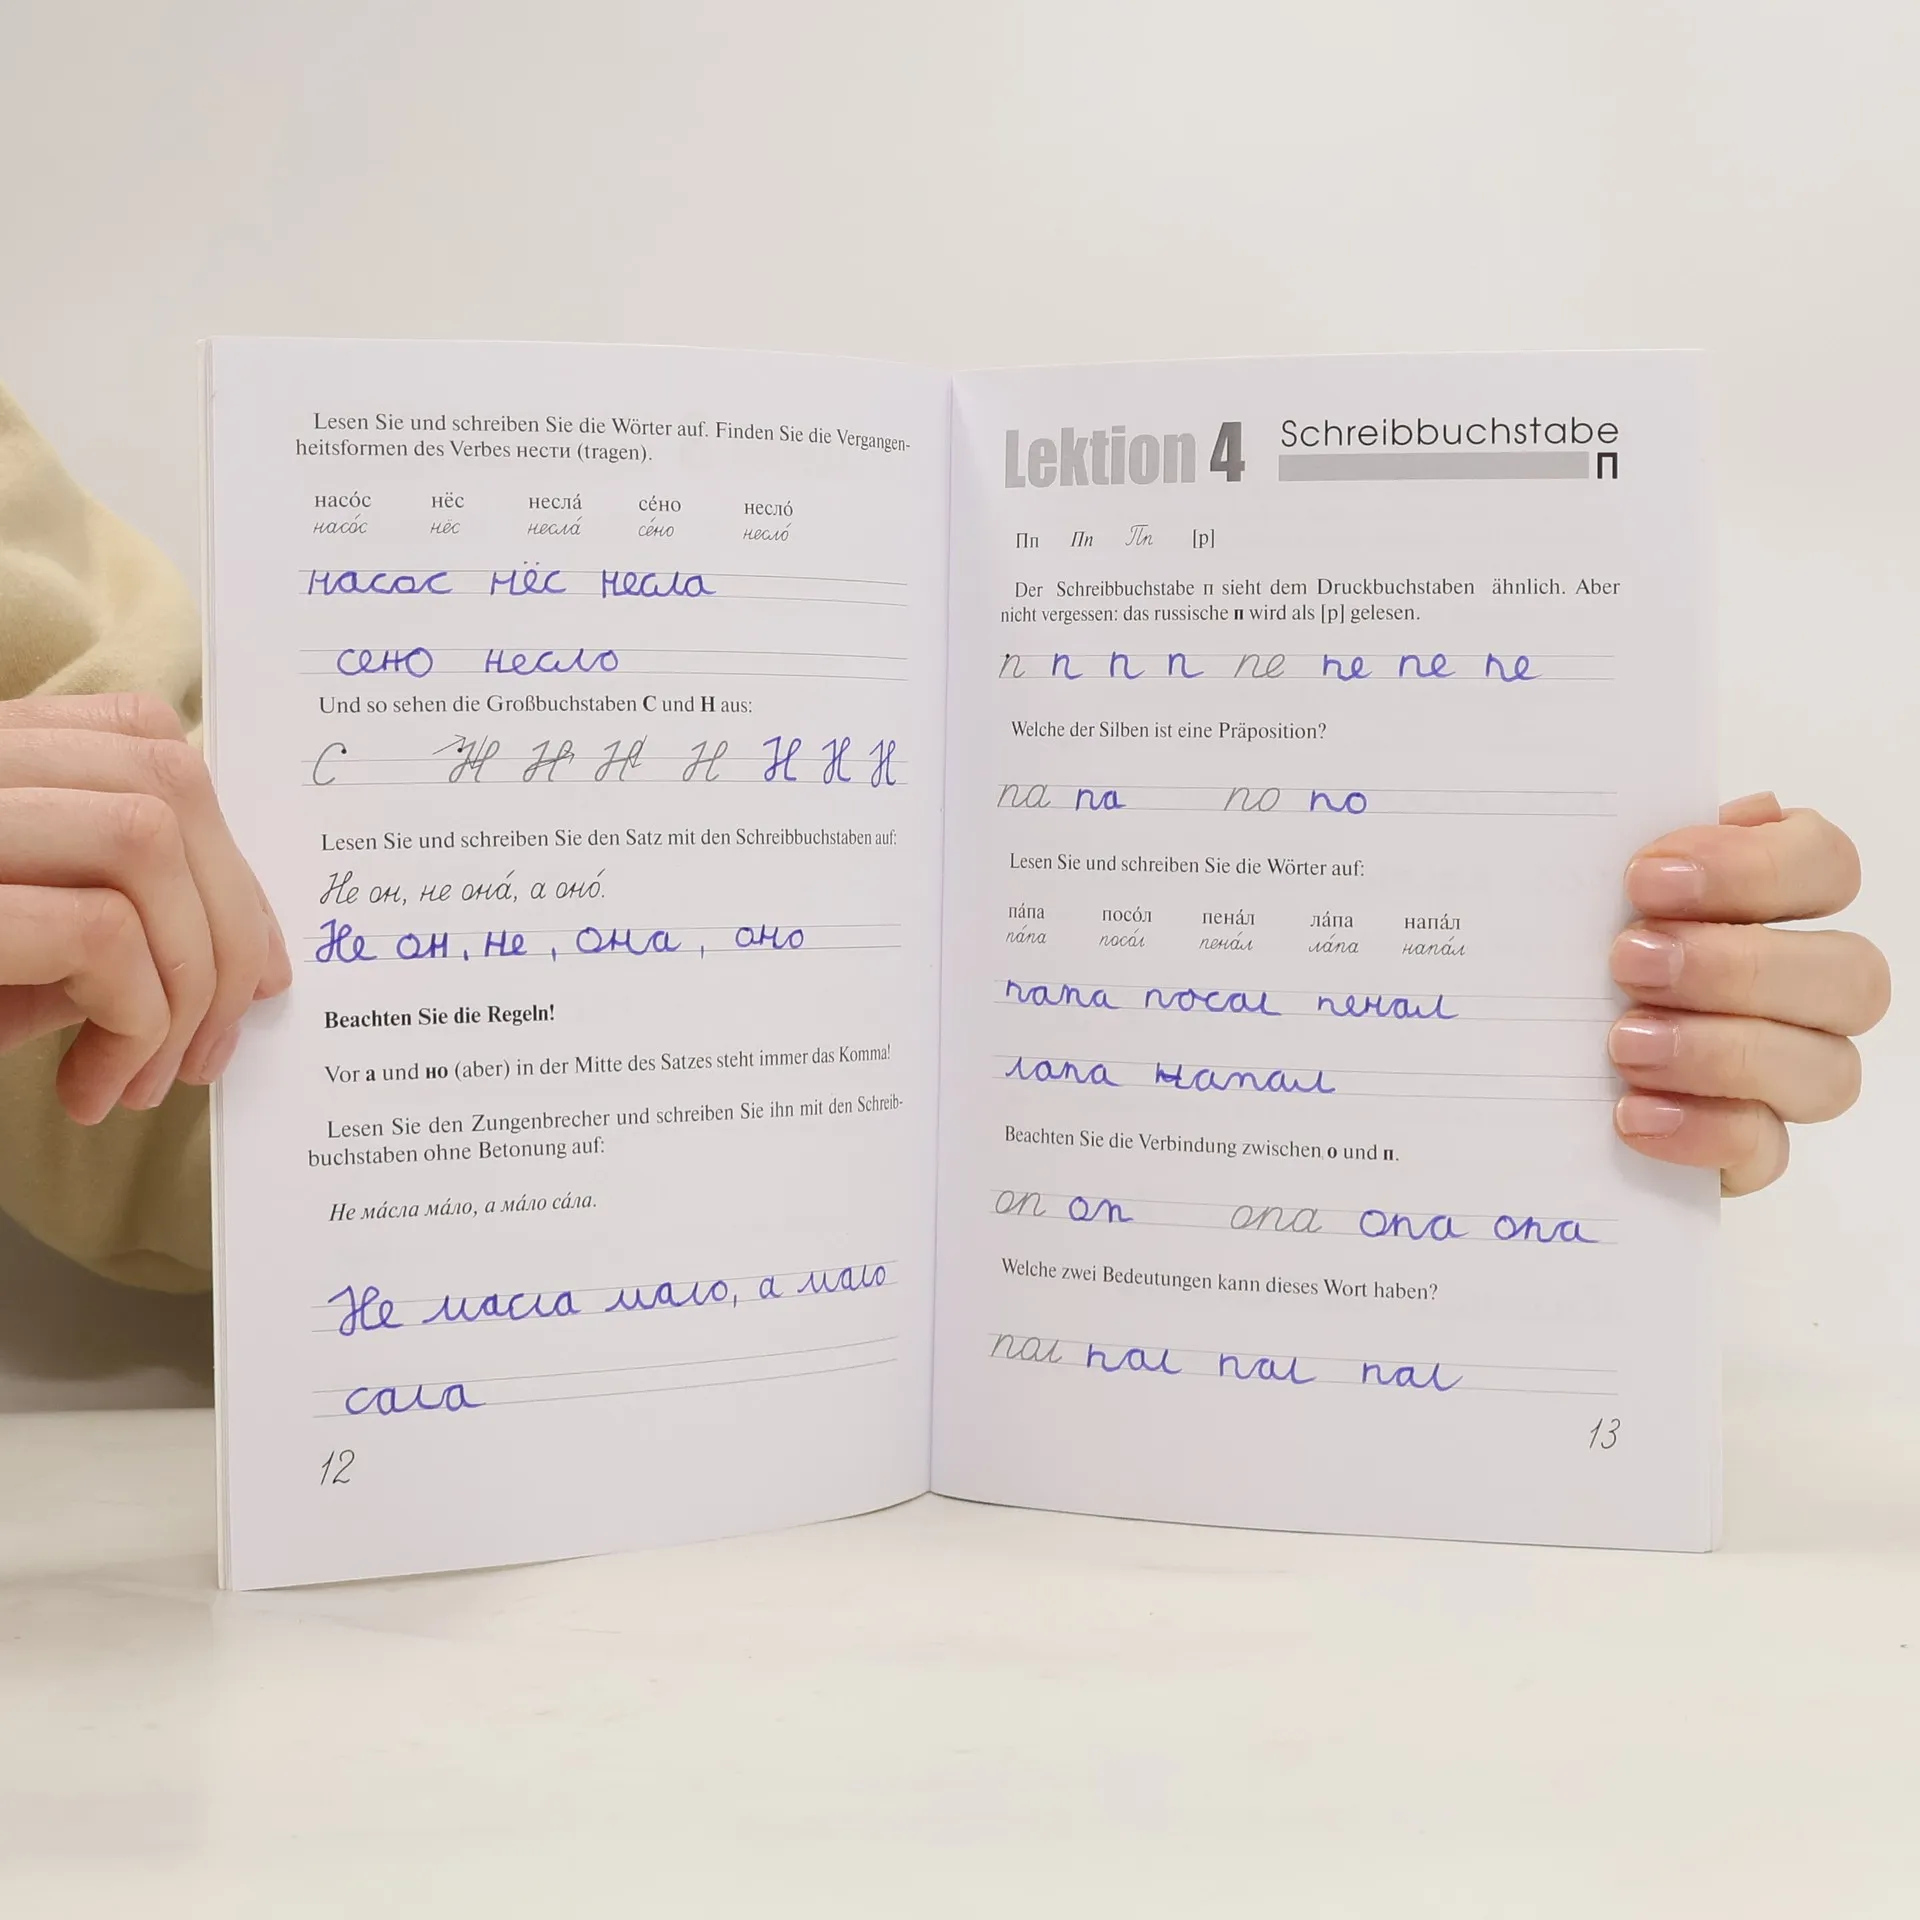 Lesen Sie und schreiben Sie die Wörter auf. Finden Sie die Vergangen-
heitsformen des Verbes нести (tragen).
насо́с нёс несла́ се́но несло́
насо́с нёс несла́ се́но несло́
насос нёс несла
сено несло
Und so sehen die Großbuchstaben С und Н aus:
С Н Н Н Н Н Н Н
Lesen Sie und schreiben Sie den Satz mit den Schreibbuchstaben auf:
Не он, не она́, а оно́.
Не он, не, она, оно
Beachten Sie die Regeln!
Vor а und но (aber) in der Mitte des Satzes steht immer das Komma!
Lesen Sie den Zungenbrecher und schreiben Sie ihn mit den Schreib-
buchstaben ohne Betonung auf:
Не ма́сла ма́ло, а ма́ло са́ла.
Не масла мало, а мало
сала
12
Lektion 4 Schreibbuchstabe
П
Пп Пп Пп [p]
Der Schreibbuchstabe п sieht dem Druckbuchstaben ähnlich. Aber
nicht vergessen: das russische п wird als [p] gelesen.
п п п п пе пе пе пе
Welche der Silben ist eine Präposition?
па па по по
Lesen Sie und schreiben Sie die Wörter auf:
па́па посо́л пена́л ла́па напа́л
па́па посо́л пена́л ла́па напа́л
папа посол пенал
лапа напал
Beachten Sie die Verbindung zwischen о und п.
оп оп опа опа опа
Welche zwei Bedeutungen kann dieses Wort haben?
пол пол пол пол
13